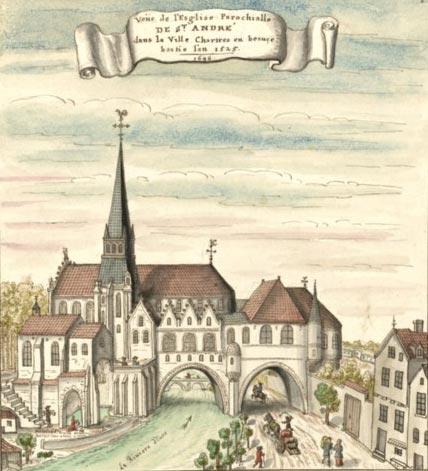 Veüe de l'Eglise Parochialle
DE St. ANDRÉ
dans la Ville Chartres en beauce
bastie l'an 1525.
1696
la Riviere d'Eure